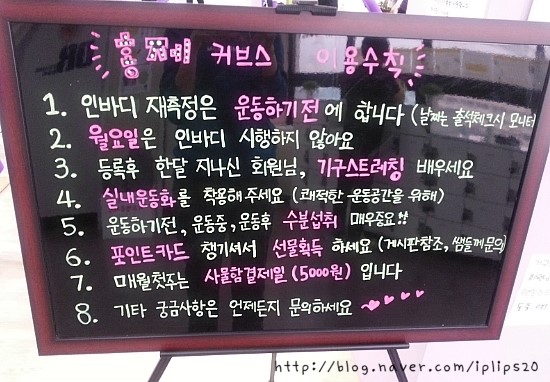 홍제 커브스 이용수칙
1. 인바디 재측정은 운동하기전에 합니다 (날짜는 출석체크시 모니터
2. 월요일은 인바디 시행하지 않아요
3. 등록후 한달 지나신 회원님, 기구스트레칭 배우세요
4. 실내운동화를 착용해주세요 (쾌적한 운동공간을 위해)
5. 운동하기전, 운동중, 운동후 수분섭취 매우중요!!
6. 포인트카드 챙기셔서 선물획득 하세요 (게시판참조, 쌤들께문의)
7. 매월첫주는 사물함결제일 (5000원) 입니다
8. 기타 궁금사항은 언제든지 문의하세요
http://blog.naver.com/iplips20